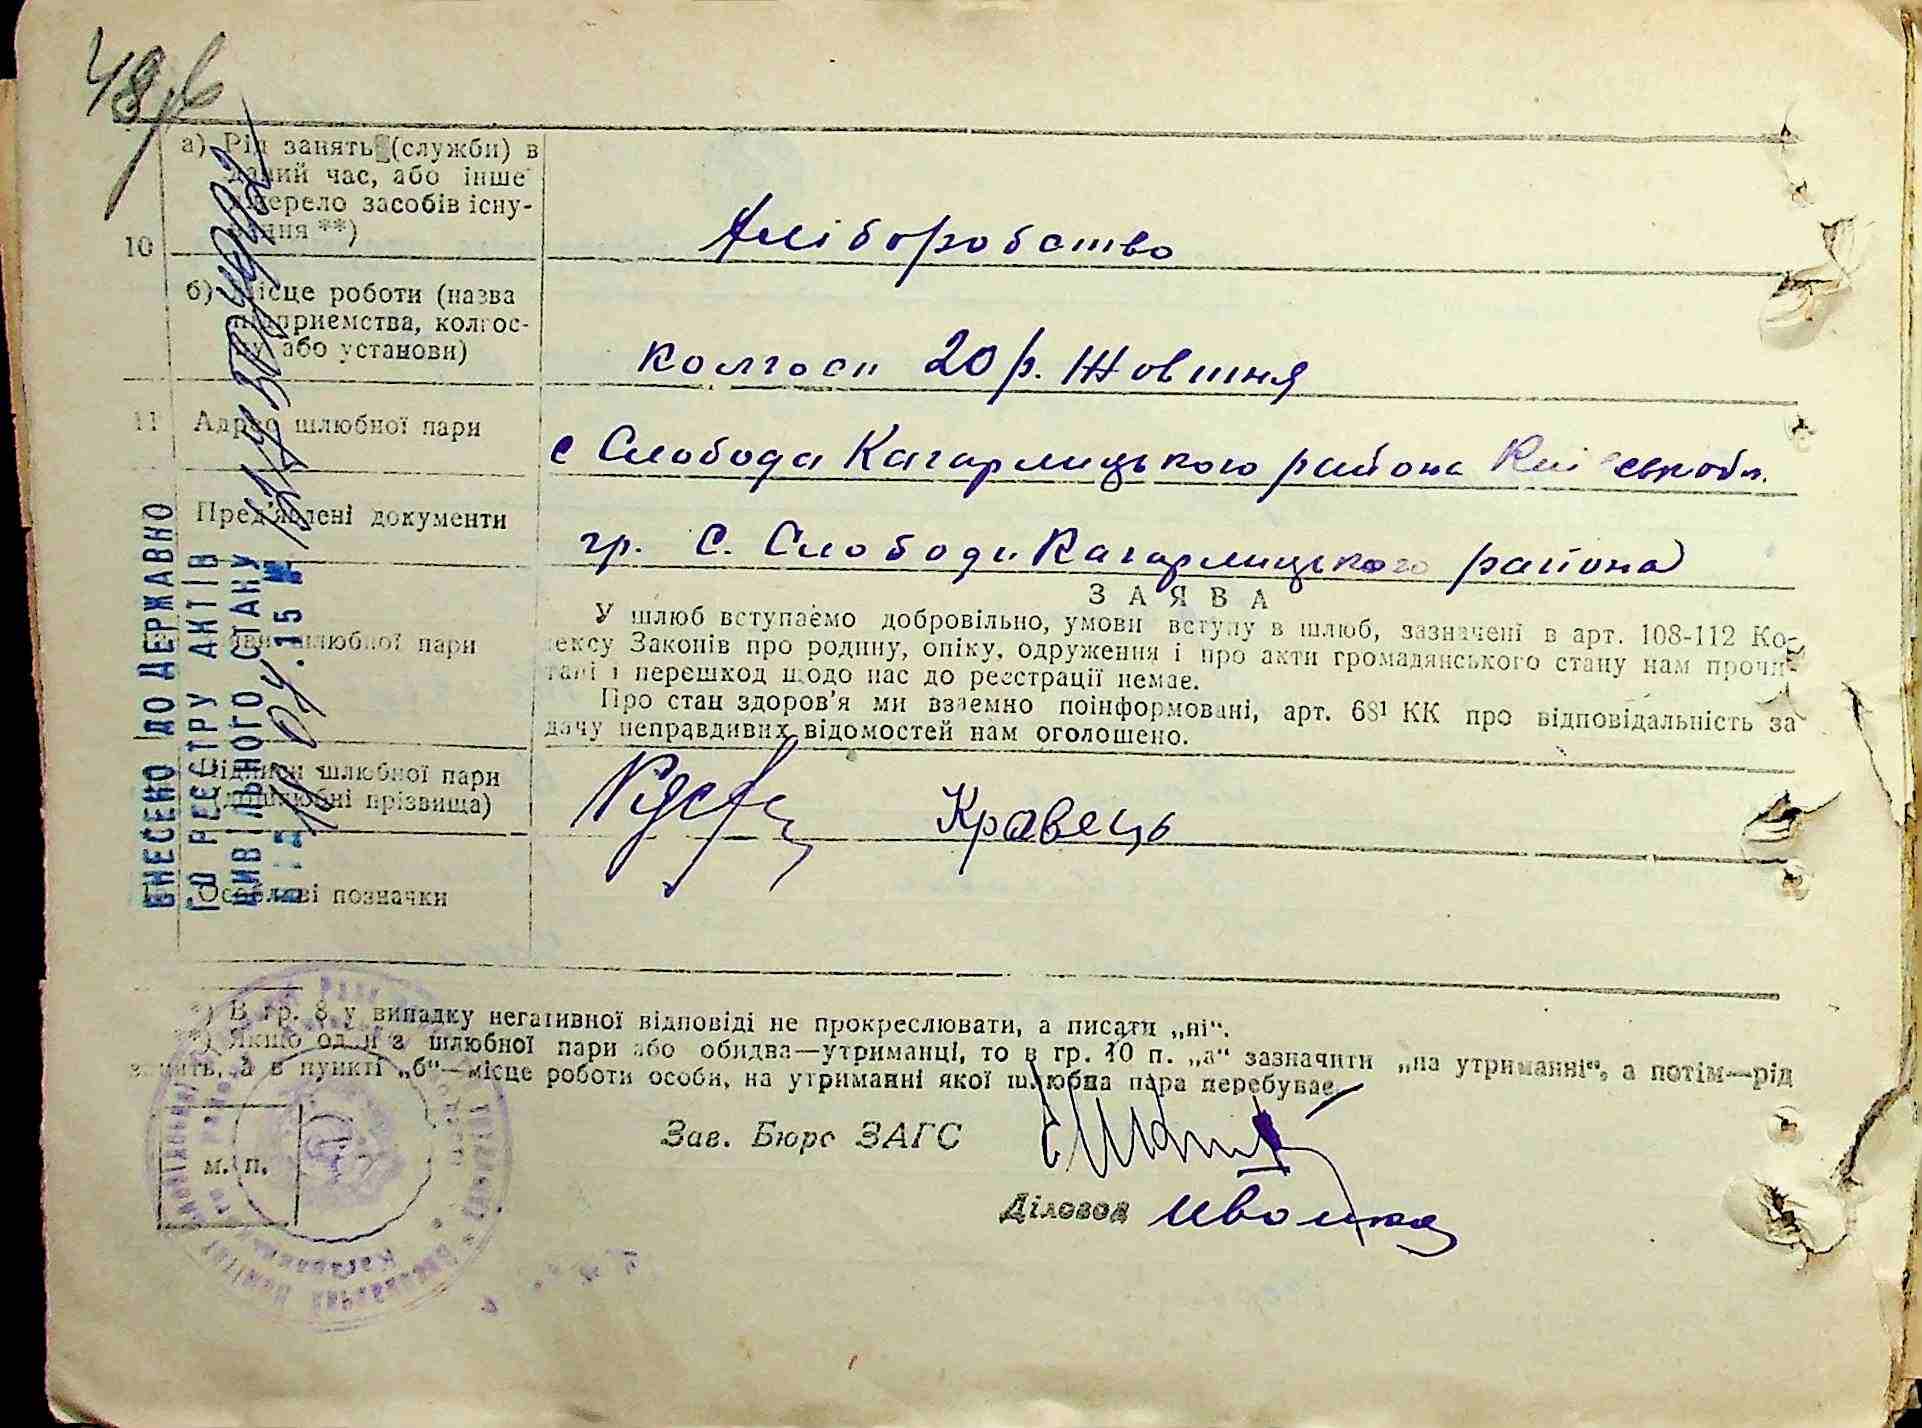 а) Рід занять (службн) в
даний час, або інше
джерело засобів існу-
вання **)
Хліборобство
10
б) Місце роботи (назва
підприємства, колгос-
пу або установи)
колгосп 20 р. Жовтня
11 Адрес шлюбної пари
с Слобода Кагарлицького района Київськобл.
Пред'явлені документи
гр. С. Слободи Кагарлицького района
ЗАЯВА
шлюбної пари
У шлюб вступаємо добровільно, умови вступу в шлюб, зазначені в арт. 108-112 Ко-
дексу Законів про родину, опіку, одруження і про акти громадянського стану нам прочи-
тані і перешкод щодо нас до реєстрації немає.
Про стан здоров'я ми взаємно поінформовані, арт. 68¹ КК про відповідальність за
дачу неправдивих відомостей нам оголошено.
Підписи шлюбної пари
(дошлюбні прізвища)
Кравець
Особливі позначки
ВНЕСЕНО ДО ДЕРЖАВНО
ГО РЕЄСТРУ АКТІВ
ЦИВІЛЬНОГО СТАНУ
*) В гр. 8 у випадку негативної відповіді не прокреслювати, а писати „ні“.
**) Якщо один з шлюбної пари або обидва—утриманці, то в гр. 10 п. „а“ зазначити „на утриманні“, а потім—рід
занять, а в пункті „б“—місце роботи особи, на утриманні якої шлюбна пара перебуває
Зав. Бюро ЗАГС
м. п.
Діловод